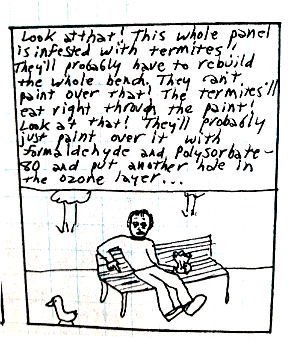 Look at that! This whole panel
is infested with termites!
They'll probably have to rebuild
the whole bench. They can't
paint over that! The termites'll
eat right through the paint!
Look at that! They'll probably
just paint over it with
formaldehyde and Polysorbate-
80 and put another hole in
the ozone layer...